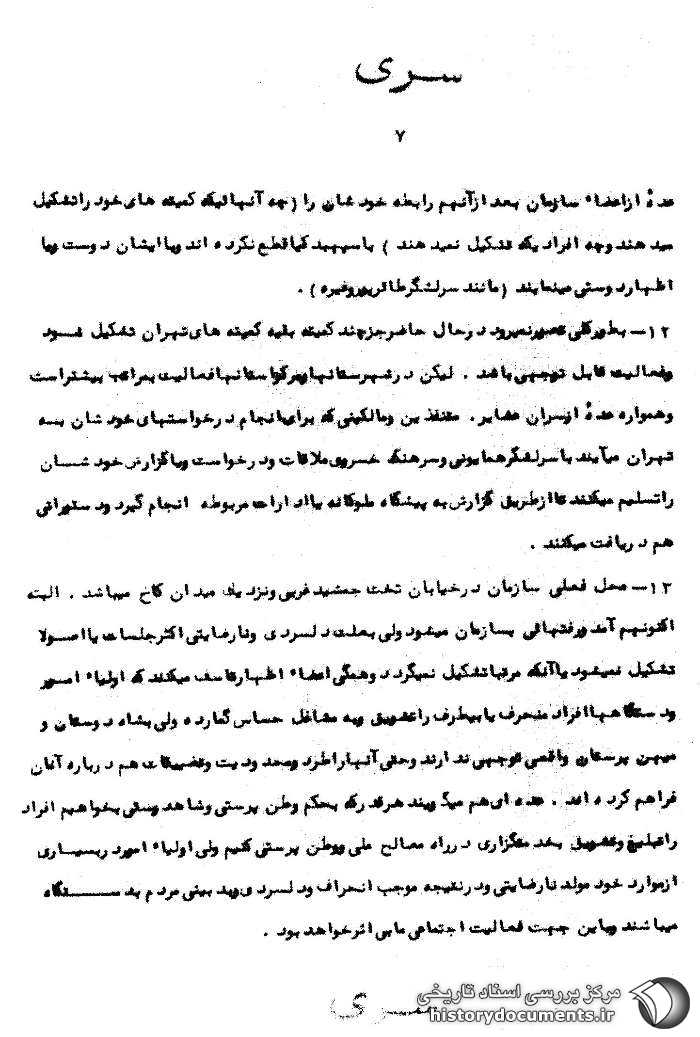 سری
۷
عدهٔ از اعضاء سازمان بعد از آنهم رابطه خودشان را (چه آنهائیکه کمیته های خود را تشکیل
میدهند و چه افرادیکه تشکیل نمیدهند ) با سپهبد کیا قطع نکرده اند و با ایشان دوست و یا
اظهار دوستی مینمایند (مانند سرلشگر طاهرپور و غیره ) .
۱۲ـ بطور کلی تصور نمیرود در حال حاضر جز چند کمیته بقیه کمیته های تهران تشکیل شود
و فعالیت قابل توجهی باشد . لیکن در شهرستانها و در استانها فعالیت بمراتب بیشتر است
و همواره عدهٔ از سران عشایر . متنفذین و مالکینی که برای انجام درخواستهای خودشان به
تهران میآیند با سرلشگر همایونی و سرهنگ خسروی ملاقات و درخواست و یا گزارش خودشان
را تسلیم میکنند تا از طریق گزارش به پیشگاه ملوکانه یا ادارات مربوطه انجام گیرد و دستوراتی
هم دریافت میکنند .
۱۳ـ محل فعلی سازمان در خیابان تخت جمشید غربی و نزدیک میدان کاخ میباشد . البته
اکنون هم آمد و رفتهائی بسازمان میشود ولی بعلت دلسردی و نارضایتی اکثر جلسات یا اصولا
تشکیل نمیشود یا آنکه مرتبا تشکیل نمیگردد و همگی اعضاء اظهار تاسف میکنند که اولیاء امور
و دستگاهها افراد منحرف یا بیطرف را تشویق و به مشاغل حساس گمارده ولی بشاه دوستان و
میهن پرستان واقعی توجهی ندارند و حتی آنها را طرد و محدودیت و تضییقات هم درباره آنان
فراهم کرده اند . عده ای هم میگویند هر قدر که بحکم وطن پرستی و شاهدوستی بخواهیم افراد
را تبلیغ و تشویق بخدمتگزاری در راه مصالح ملی و وطن پرستی کنیم ولی اولیاء امور در بسیاری
از موارد خود مولد نارضایتی و در نتیجه موجب انحراف و دلسردی و بدبینی مردم بدستگاه
میباشند و باین جهت فعالیت اجتماعی ما بی اثر خواهد بود .
سری
مرکز بررسی اسناد تاریخی
historydocuments.ir